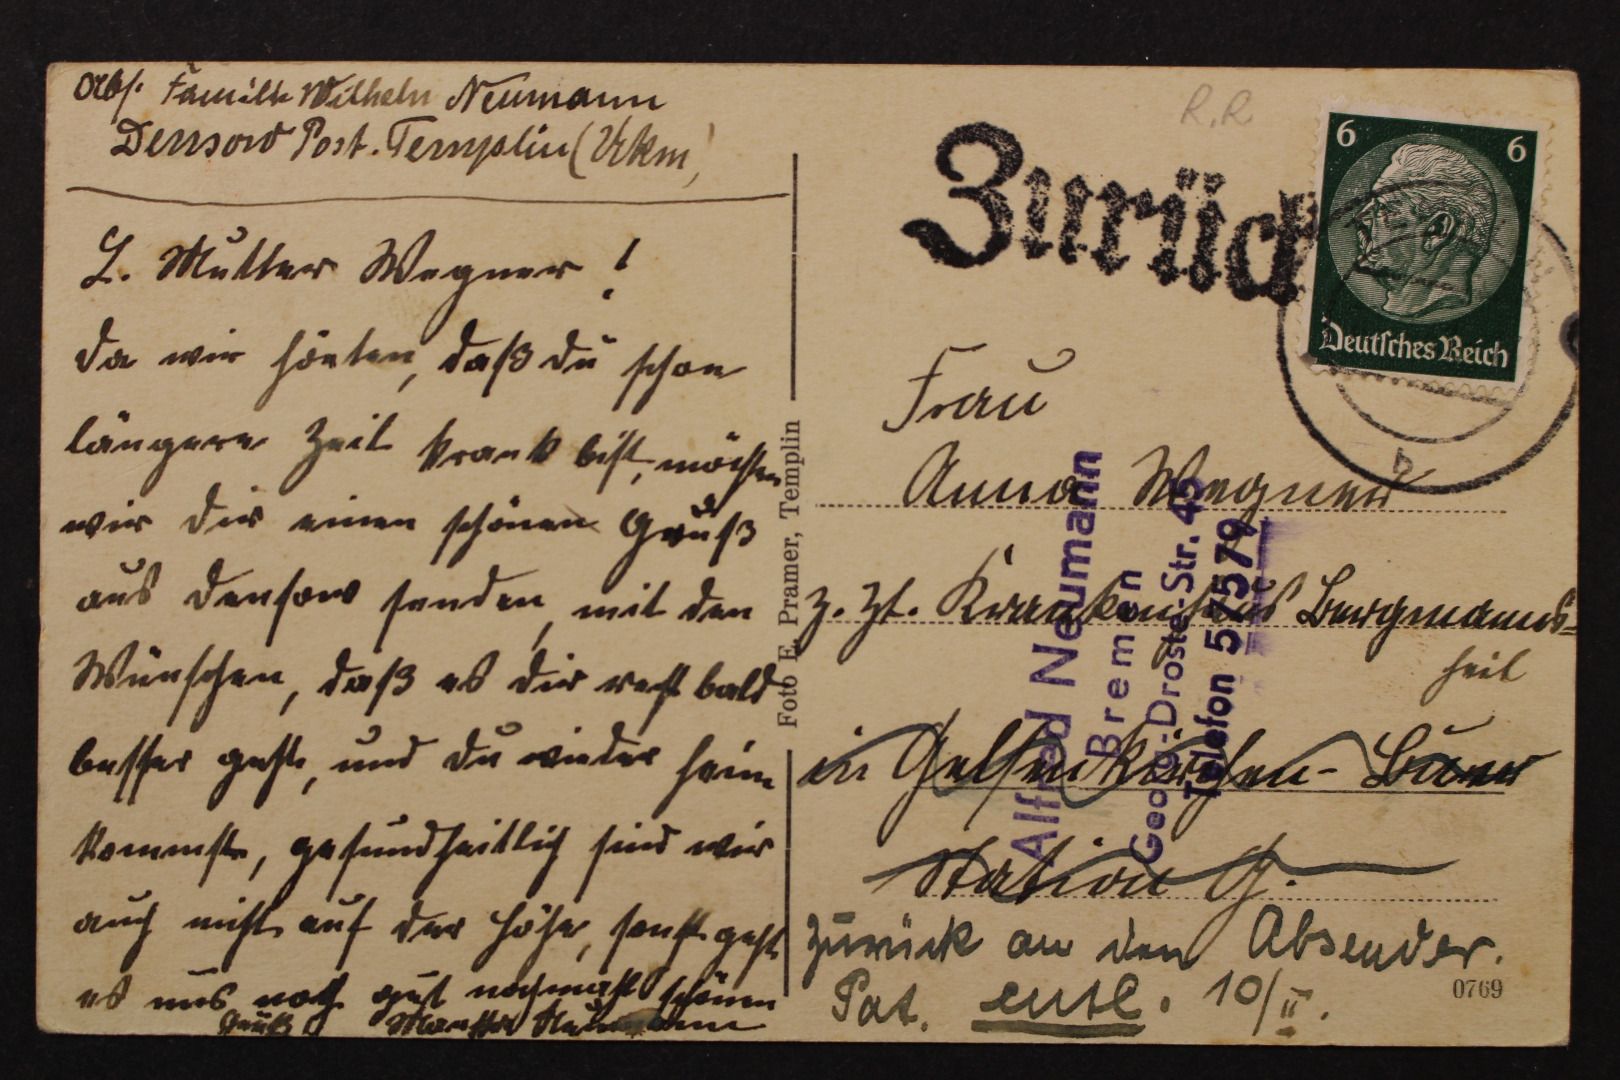 Abs. Familie Wilhelm Neumann
Densow Post. Templin (Ukm)
L. Mutter Wegner!
Da wir hörten, daß du schon
längere Zeit krank bist, möchten
wir dir einen schönen Gruß
aus Densow senden, mit den
Wünschen, daß es dir recht bald
besser geht, und du wieder heim
kommst, gesundheitlich sind wir
auch nicht auf der Höhe, sonst geht
es uns noch gut nochmals schönen
Gruß Neumann
Foto E. Pramer, Templin
R.R
Zurück
6 6
Deutsches Reich
b
Frau
Anna Wegner
z. Zt. Krankenhaus Bergmanns-
heil
in Gelsenkirchen-Buer
Station G.
zurück an den Absender.
Pat. entl. 10/II.
0769
Alfred Neumann
Bremen
Georg-Droste-Str. 45
Telefon 5 7579